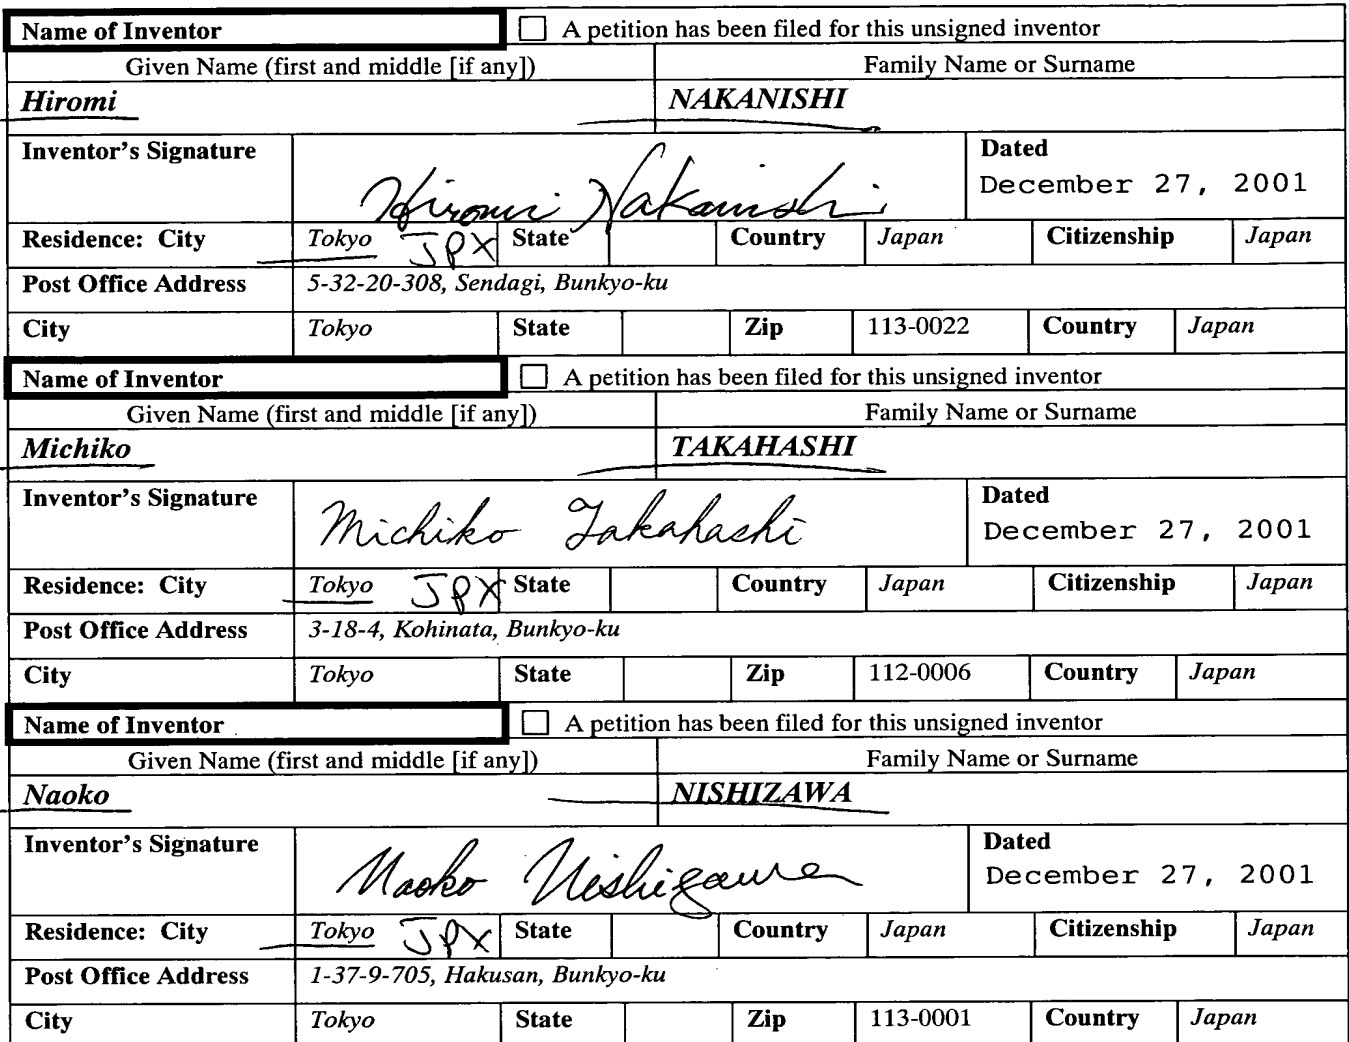 Name of Inventor ☐ A petition has been filed for this unsigned inventor
Given Name (first and middle [if any]) Family Name or Surname
Hiromi NAKANISHI
Inventor's Signature Hiromi Nakanishi Dated
December 27, 2001
Residence: City Tokyo JPX State Country Japan Citizenship Japan
Post Office Address 5-32-20-308, Sendagi, Bunkyo-ku
City Tokyo State Zip 113-0022 Country Japan
Name of Inventor ☐ A petition has been filed for this unsigned inventor
Given Name (first and middle [if any]) Family Name or Surname
Michiko TAKAHASHI
Inventor's Signature Michiko Takahashi Dated
December 27, 2001
Residence: City Tokyo JPX State Country Japan Citizenship Japan
Post Office Address 3-18-4, Kohinata, Bunkyo-ku
City Tokyo State Zip 112-0006 Country Japan
Name of Inventor ☐ A petition has been filed for this unsigned inventor
Given Name (first and middle [if any]) Family Name or Surname
Naoko NISHIZAWA
Inventor's Signature Naoko Nishizawa Dated
December 27, 2001
Residence: City Tokyo JPX State Country Japan Citizenship Japan
Post Office Address 1-37-9-705, Hakusan, Bunkyo-ku
City Tokyo State Zip 113-0001 Country Japan